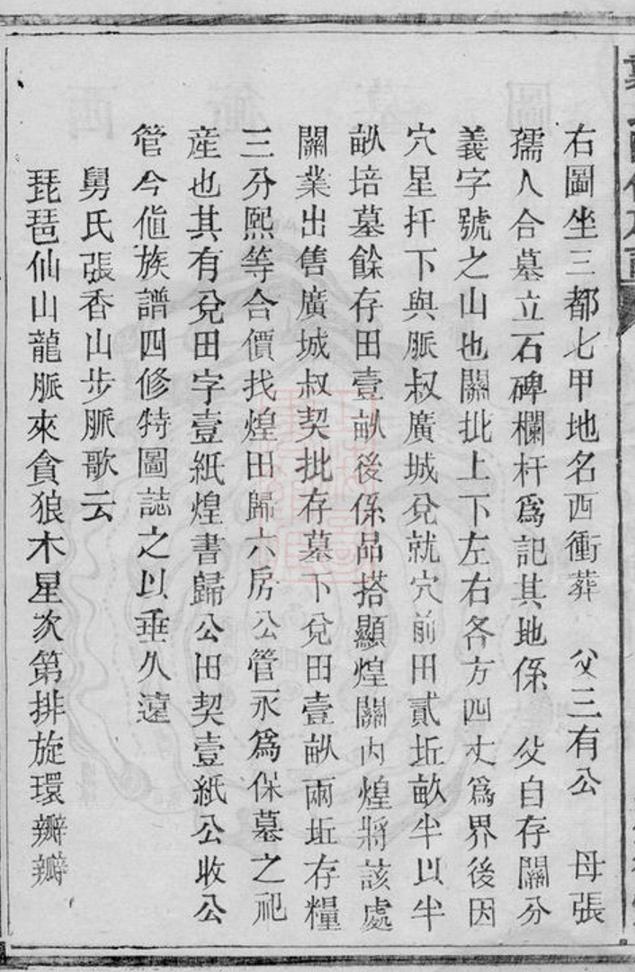 右圖坐三都七甲地名西衝葬　父三有公　母張
孺人合墓立石碑欄杆爲記其地係　父自存關分
義字號之山也關批上下左右各方四丈爲界後因
穴星扦下與脈叔廣城兌就穴前田貳坵畝半以半
畝培墓餘存田壹畝後係品搭顯煌關内煌將該處
關業出售廣城叔契批存墓下兌田壹畝兩坵存糧
三分熙等合價找煌田歸六房公管永爲保墓之祀
產也其有兌田字壹紙煌書歸公田契壹紙公收公
管今値族譜四修特圖誌之以垂久遠
舅氏張香山步脈歌云
琵琶仙山龍脈來貪狼木星次第排旋環瓣瓣